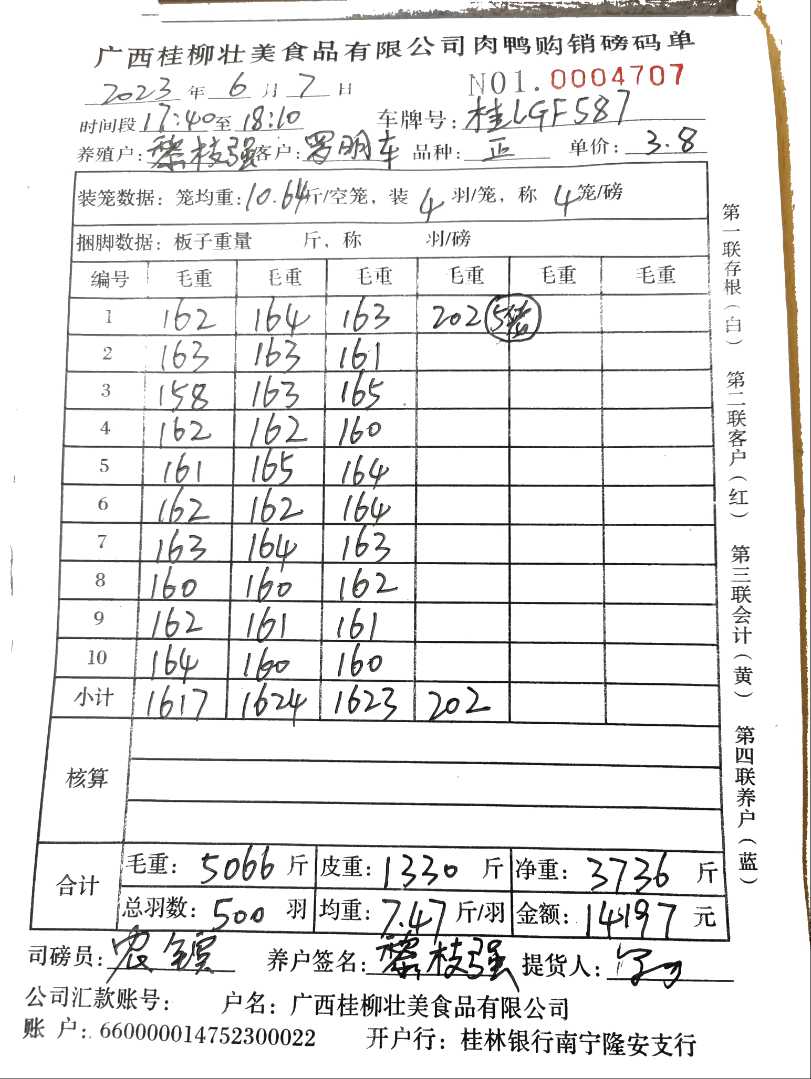 广西桂柳壮美食品有限公司肉鸭购销磅码单
2023 年 6 月 7 日 NO1. 0004707
时间段 17:40 至 18:10 车牌号: 桂LGF587
养殖户: 黎枝强 客户: 罗明车 品种: 正 单价: 3.8
装笼数据: 笼均重: 10.64 斤/空笼, 装 4 羽/笼, 称 4 笼/磅
捆脚数据: 板子重量 斤, 称 羽/磅
编号 毛重 毛重 毛重 毛重 毛重 毛重
1 162 164 163 202 5
2 163 163 161
3 158 163 165
4 162 162 160
5 161 165 164
6 162 162 164
7 163 164 163
8 160 160 162
9 162 161 161
10 164 160 160
小计 1617 1624 1623 202
核算
合计 毛重: 5066 斤 皮重: 1330 斤 净重: 3736 斤
总羽数: 500 羽 均重: 7.47 斤/羽 金额: 14197 元
司磅员: 农 养户签名: 黎枝强 提货人:
公司汇款账号: 户名: 广西桂柳壮美食品有限公司
账 户: 660000014752300022 开户行: 桂林银行南宁隆安支行
第一联存根(白) 第二联客户(红) 第三联会计(黄) 第四联养户(蓝)